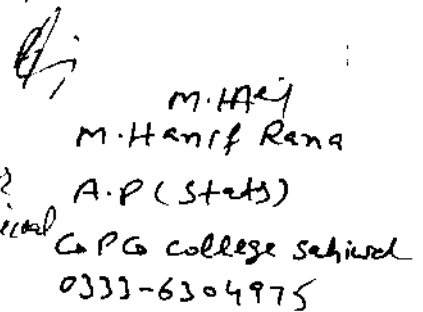 M. Hanif Rana
A.P (Stats)
G P G college sahiwal
0333-6304975